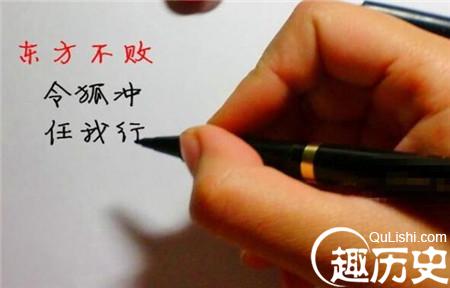 东方不败
令狐冲
任我行
QuLishi.com
趣历史